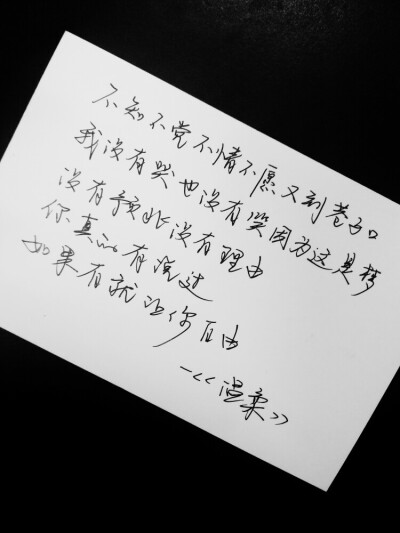 不知不觉不情不愿又到巷子口
我没有哭也没有笑因为这是梦
没有预兆没有理由
你真的有说过
如果有就让你自由
-<<温柔>>